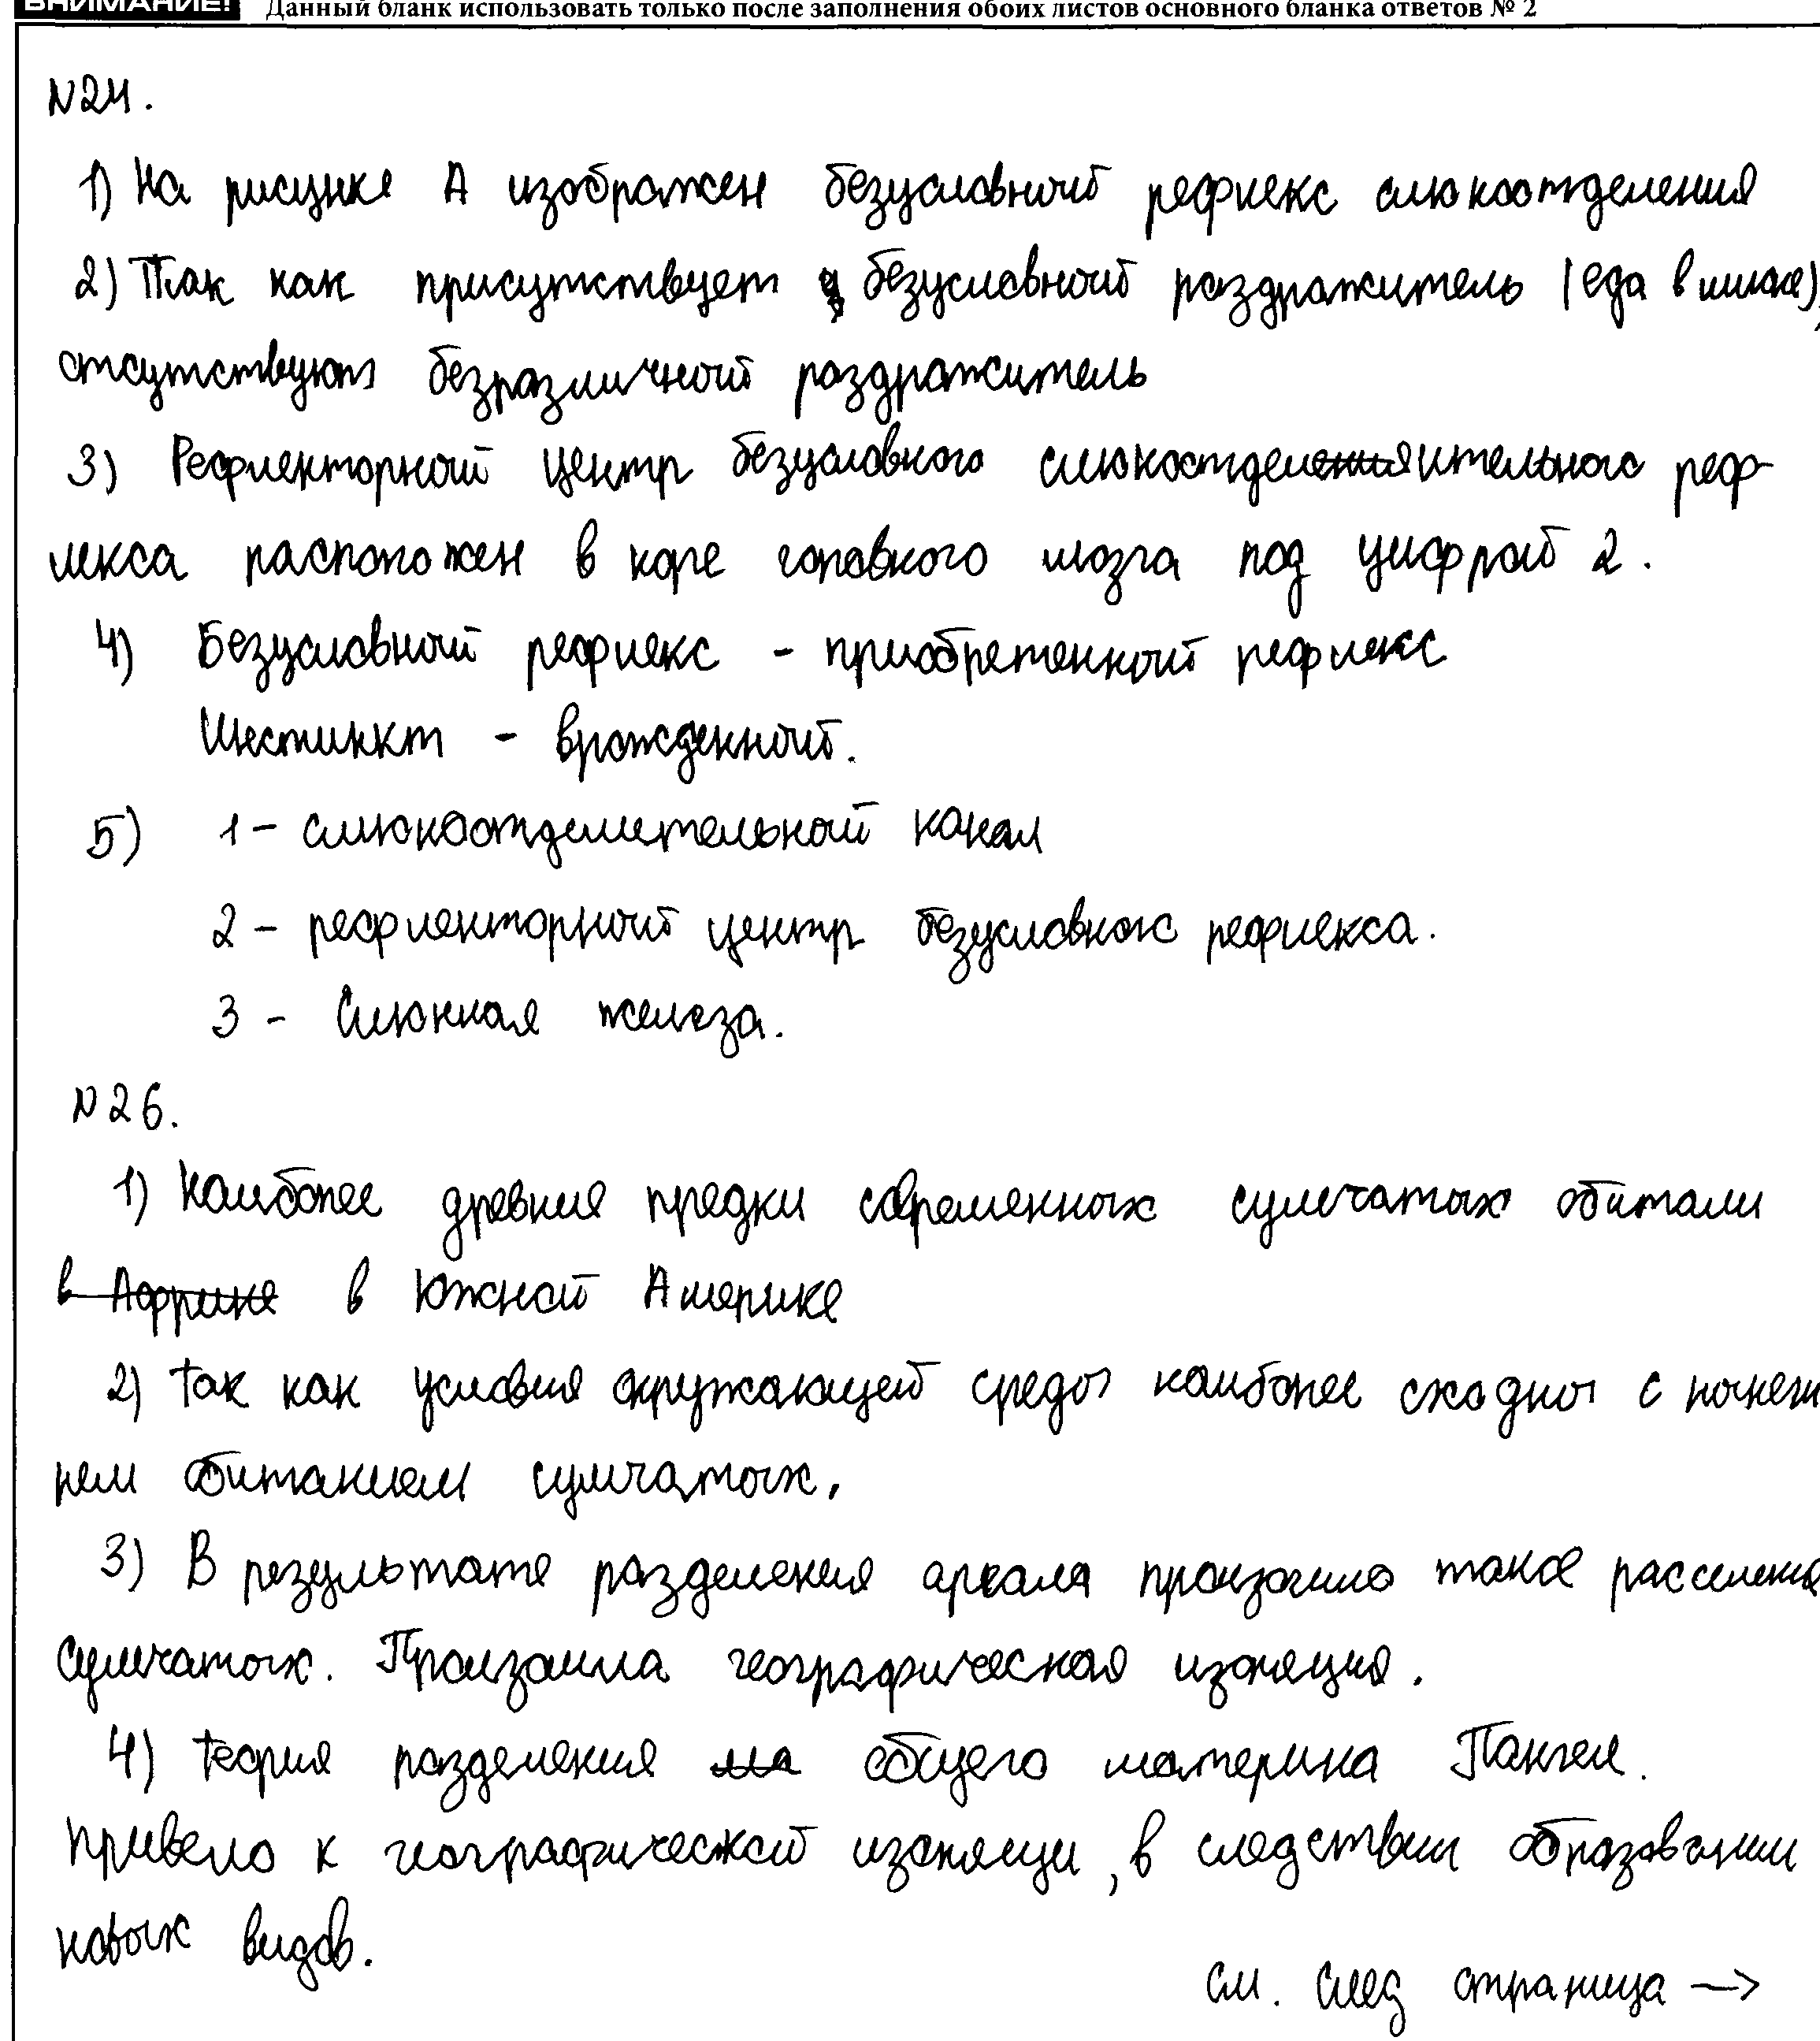 ВНИМАНИЕ! Данный бланк использовать только после заполнения обоих листов основного бланка ответов № 2
N24.
1) На рисунке А изображен безусловный рефлекс слюноотделения
2) Так как присутствует безусловный раздражитель (еда в миске),
отсутствуют безразличный раздражитель
3) Рефлекторный центр безусловного слюноотделительного реф-
лекса расположен в коре головного мозга под цифрой 2.
4) Безусловный рефлекс - приобретенный рефлекс
Инстинкт - врожденный.
5) 1 - слюноотделительный канал
2 - рефлекторный центр безусловного рефлекса.
3 - Слюнная железа.
N26.
1) Наиболее древние предки современных сумчатых обитали
в Африке в Южной Америке
2) Так как условия окружающей среды наиболее сходны с нынеш
нем обитанием сумчатых.
3) В результате разделения ареала произошло такое расселение
сумчатых. Произошла географическая изоляция.
4) Теория разделения ма общего материка Пангеи.
Привело к географической изоляци, в следствии образовании
новых видов.
см. след страница →